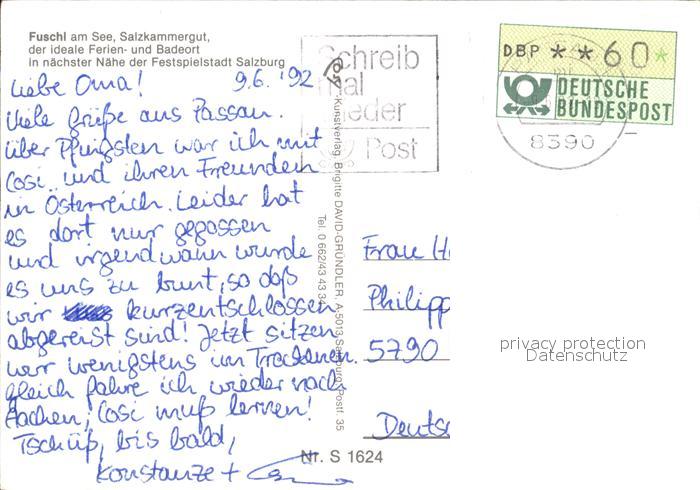 Fuschl am See, Salzkammergut,
der ideale Ferien- und Badeort
in nächster Nähe der Festspielstadt Salzburg
Liebe Oma! 9.6. '92
Viele Grüße aus Passau.
Über Pfingsten war ich mit
Cosi und ihren Freunden
in Österreich. Leider hat
es dort nur gegossen
und irgendwann wurde
es uns zu bunt, so daß
wir kurzentschlossen
abgereist sind! Jetzt sitzen
wir wenigstens im Trockenen.
Gleich fahre ich wieder nach
Aachen, Cosi muß lernen!
Tschüß, bis bald,
Konstanze +
Schreib
mal
wieder
Post
Kunstverlag Brigitte DAVID-GRÜNDLER, A-5013 Salzburg, Postf. 35
Tel. 0 662/43 43 34
Nr. S 1624
DBP **60*
DEUTSCHE
BUNDESPOST
8390
Frau H
Philipp
5790
Deutsc
privacy protection
Datenschutz